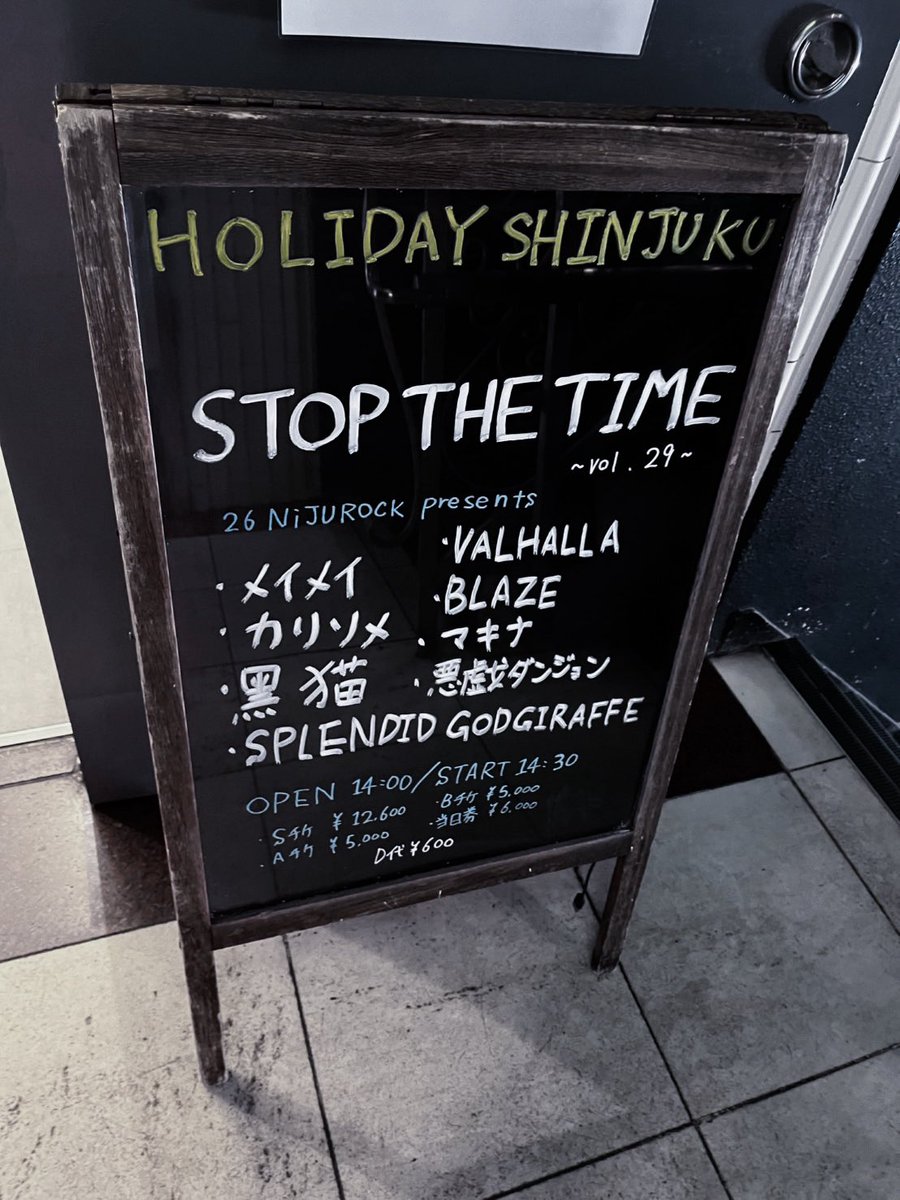 HOLIDAY SHINJUKU
STOP THE TIME
~vol. 29~
26 NiJUROCK presents
・メイメイ
・カリソメ
・黒猫
・SPLENDID GODGIRAFFE
・VALHALLA
・BLAZE
・マキナ
・悪虚女ダンジョン
OPEN 14:00/START 14:30
・Sチケ ¥12.600
・Aチケ ¥5.000
・Bチケ ¥5.000
・当日券 ¥6.000
D代¥600